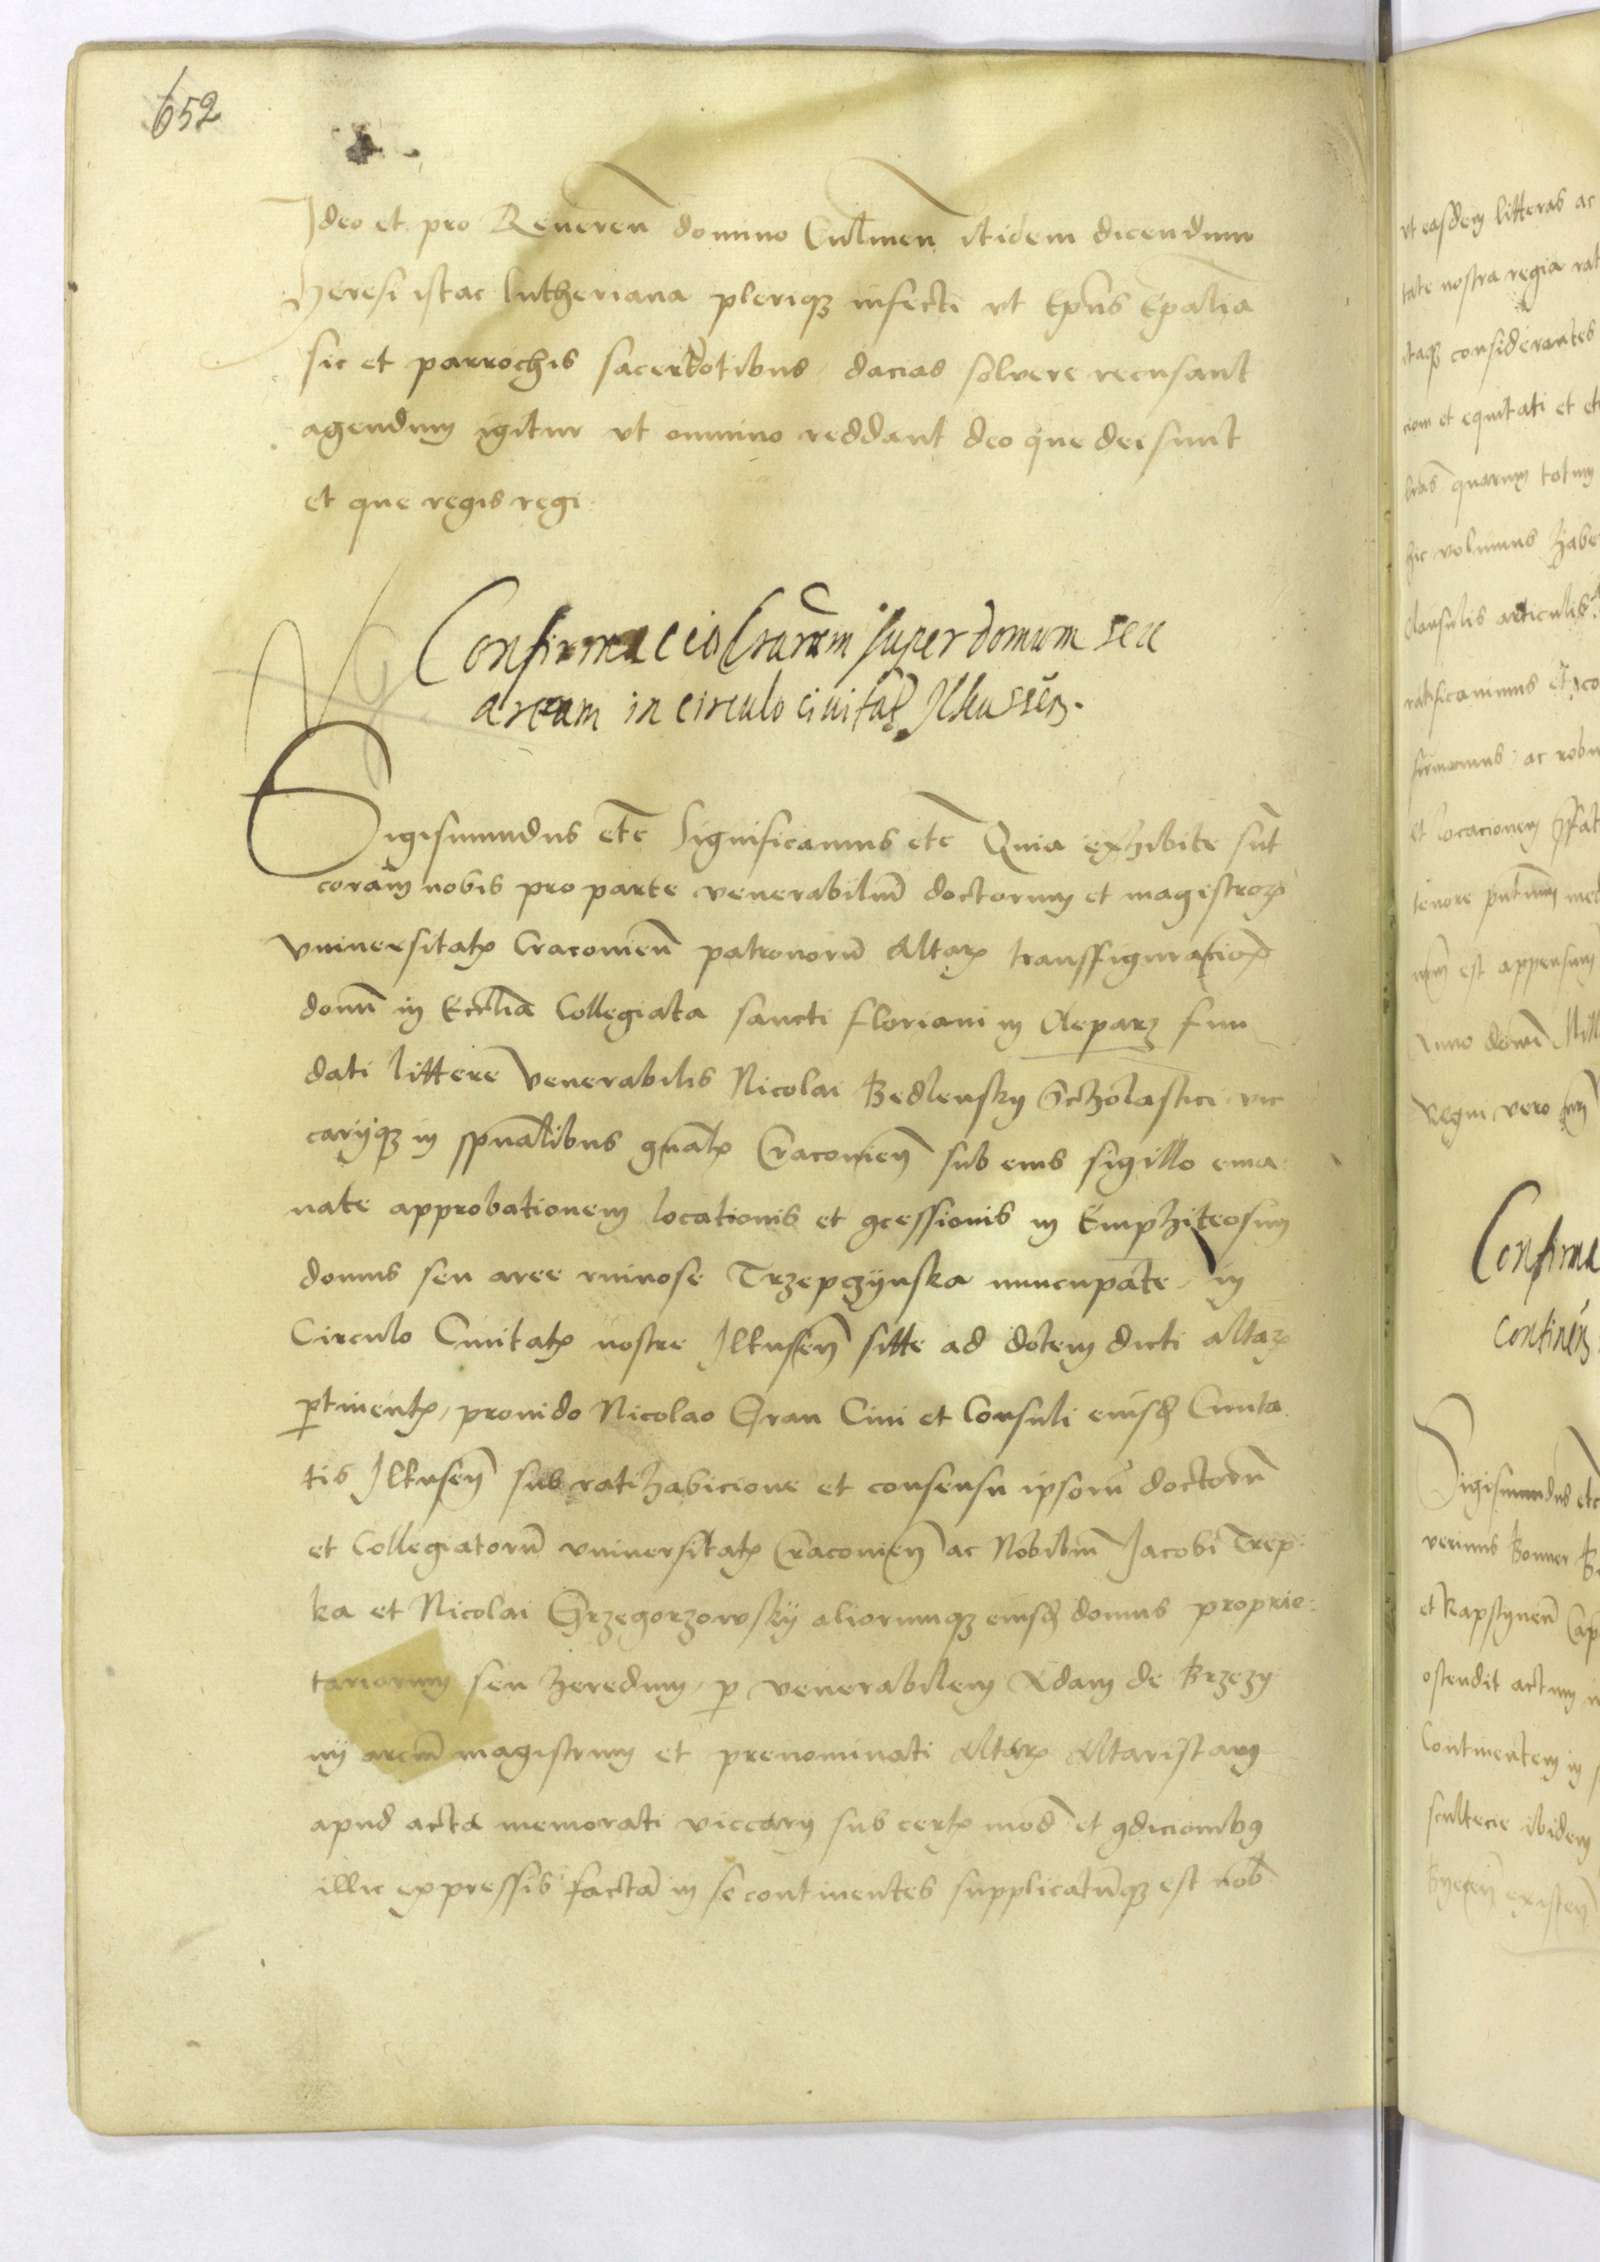 652
Ideo et pro Reveren domino Culmen itidem dicendum
Heresi istac lutheriana plerique infecti ut Epus Epalia
sic et parrochis sacerdotibus dacias solvere recusant
agendum igitur ut omnino reddant deo que dei sunt
et que regis regi
Confirmacio lrarum super domum seu
aream in circulo civitatis Ilkussen.
Sigismundus etc Significamus etc Quia exhibite sunt
coram nobis pro parte venerabilium doctorum et magistrorum
universitatis Cracovien patronorum Altaris transffiguracionis
domini in Ecclia Collegiata sancti floriani in Cleparz fun
dati littere Venerabilis Nicolai Bedlensky Scholastici vic
carijque in spualibus gnalis Cracovien sub eius sigillo ema
nate approbationem locationis et concessionis in Emphiteosim
domus seu aree ruinose Trzepczynska nuncupate in
Circulo Civitatis nostre Ilkusen sitte ad dotem dicti altaris
pertinentis, provido Nicolao Gran Civi et Consuli eiusdem Civita
tis Ilkusen sub ratihabicione et consensu ipsorum doctorum
et Collegiatorum universitatis Cracovien ac Nobilium Jacobi Trep
ka et Nicolai Grzegorzowskij aliorumque eiusdem domus proprie
tariorum seu heredum, per venerabilem Adam de Brzezy
nij arcium magistrum et prenominati Altaris Altaristam
apud acta memorati viccarij sub certis modis et condicionibus
illic expressis factam in se continentes supplicatumque est nobis
ut easdem litteras ac
tate nostra regia rat
itaque considerantes
cioni et equitati et
lras quarum totum
hic volumus habe
clausulis articulis
ratificavimus et
firmamus, ac robu
et locacionem
tenore pntium med
nrm est appensum
Anno domini Mill
Regni vero nri
Confirma
continen
Sigismundus etc
verimus Bonner
et Rapstynen Cap
ostendit actum
Continentem in
scultecie ibidem
existen